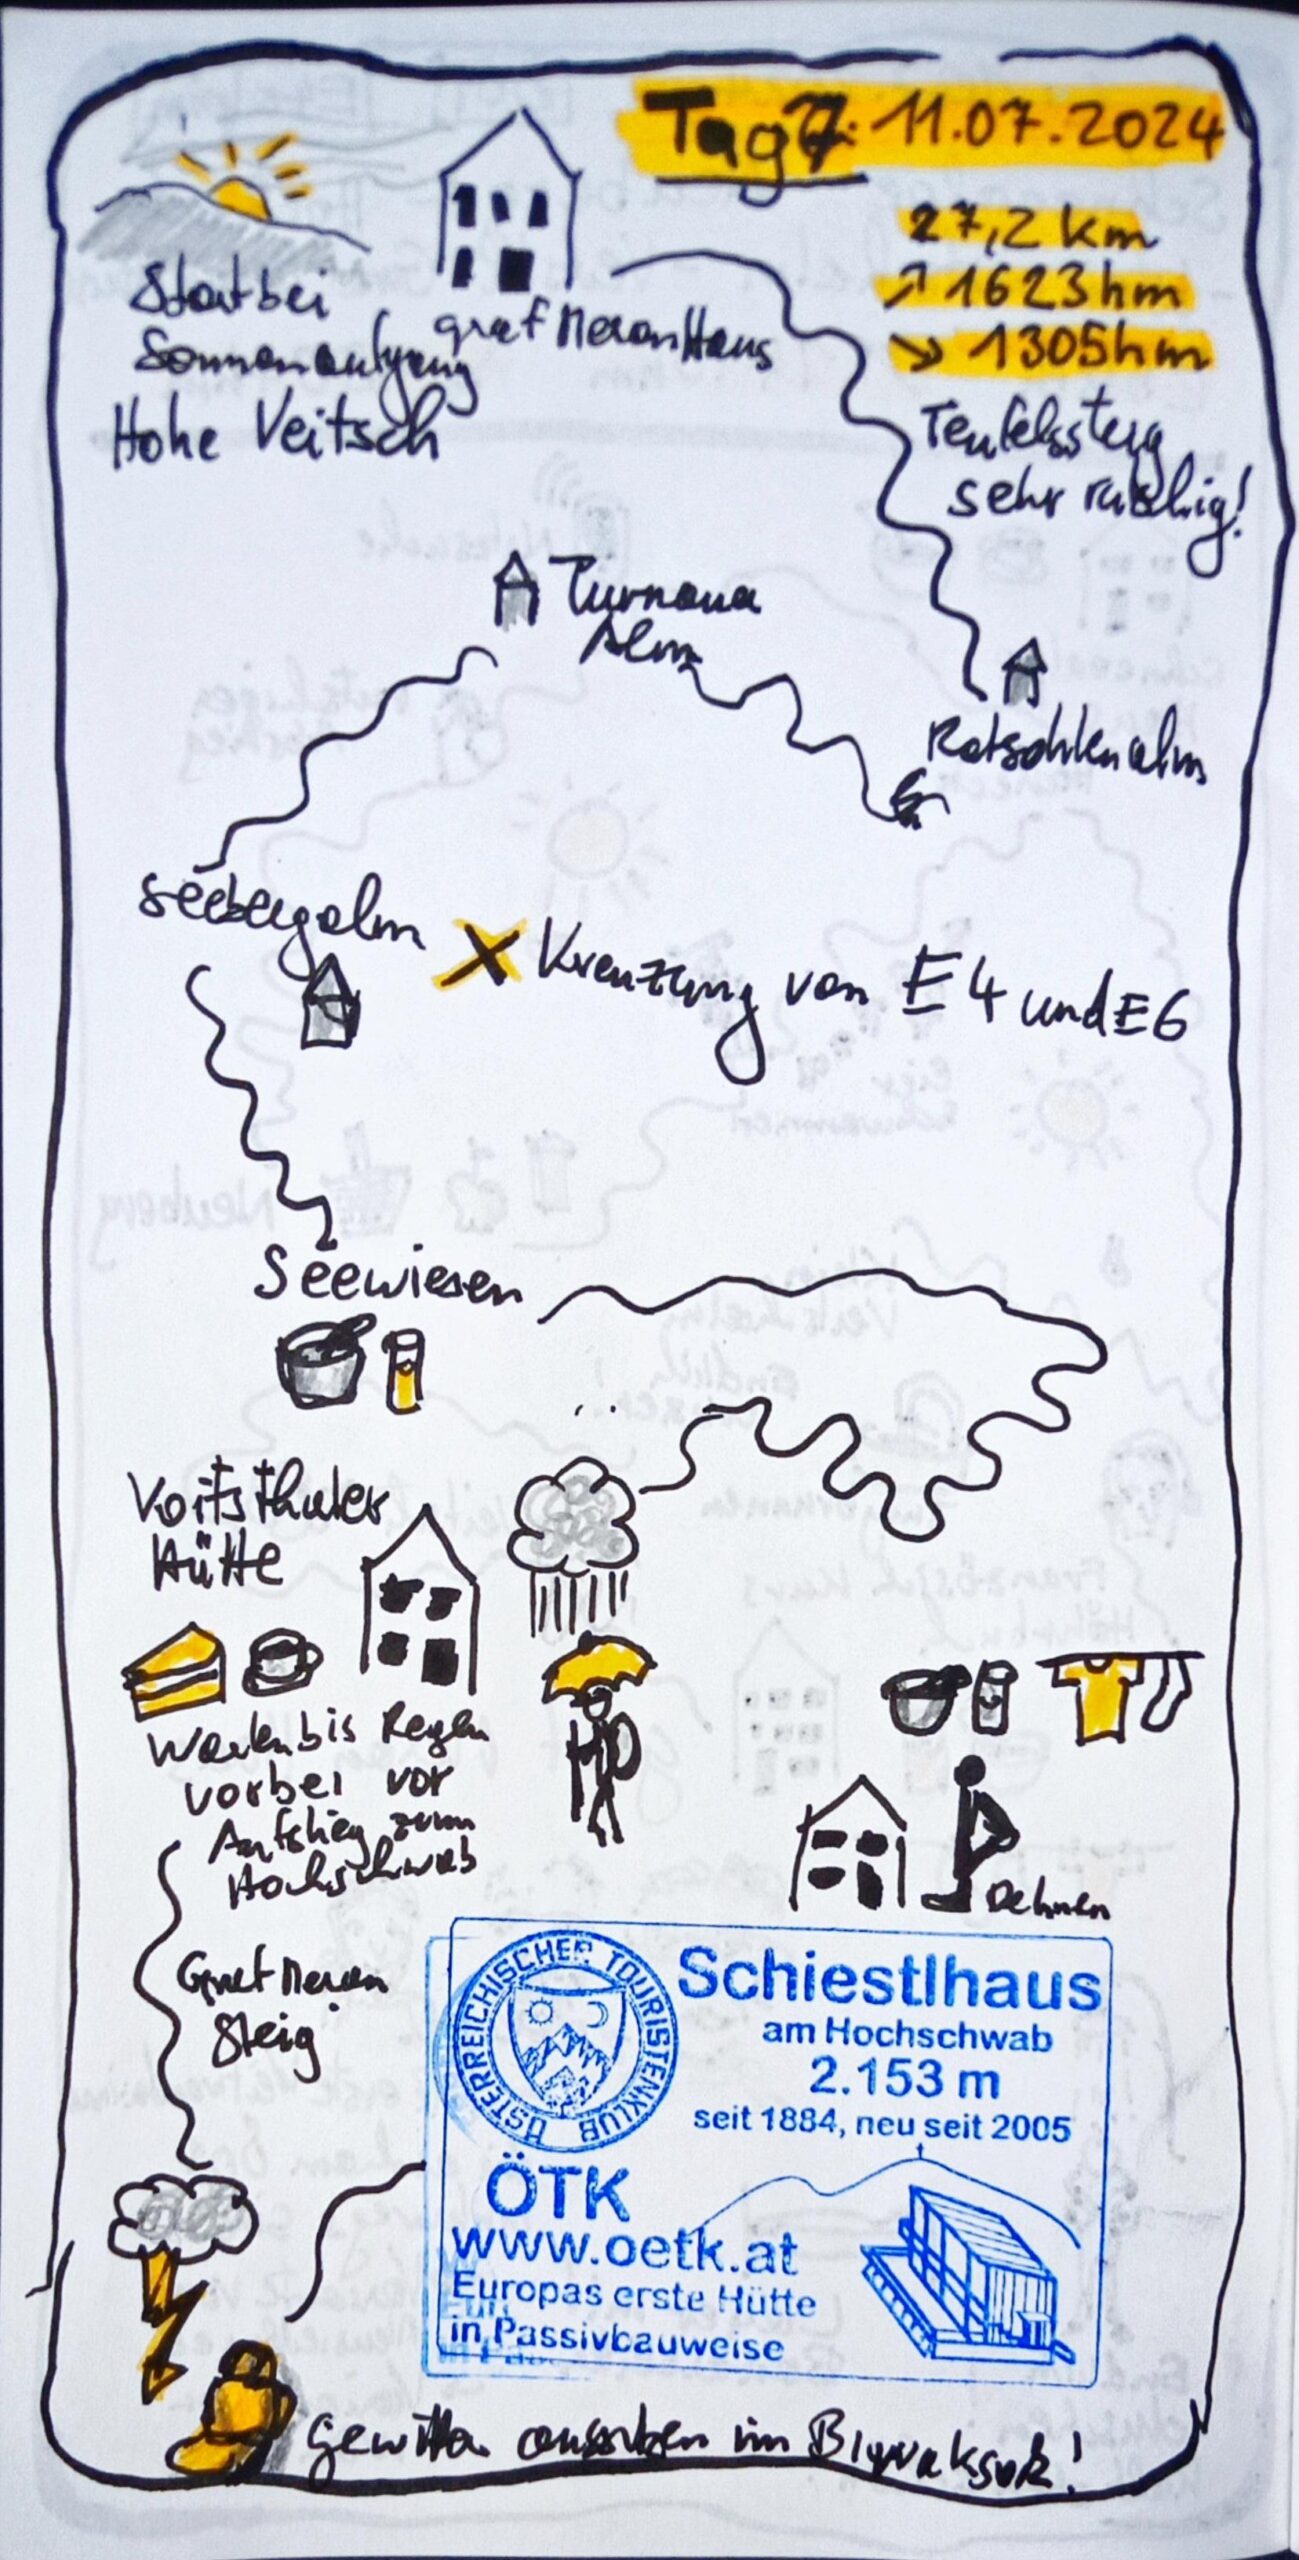 Tag 7: 11.07.2024
27,2 km
↗ 1623hm
↘ 1305hm
Start bei
Sonnenaufgang
graf Meran Haus
Hohe Veitsch
Teufelssteig
sehr
Turnaua
Alm
Rotsohlenalm
Seebergalm
X Kreuzung von E4 und E6
Seewiesen
Voitsthaler
Hütte
Warten bis Regen
vorbei vor
Aufstieg zum
Hochschwab
Dehnen
Graf Meran
Steig
ÖSTERREICHISCHER TOURISTENKLUB
Schiestlhaus
am Hochschwab
2.153 m
seit 1884, neu seit 2005
ÖTK
www.oetk.at
Europas erste Hütte
in Passivbauweise
Gewitter im Biwaksack!